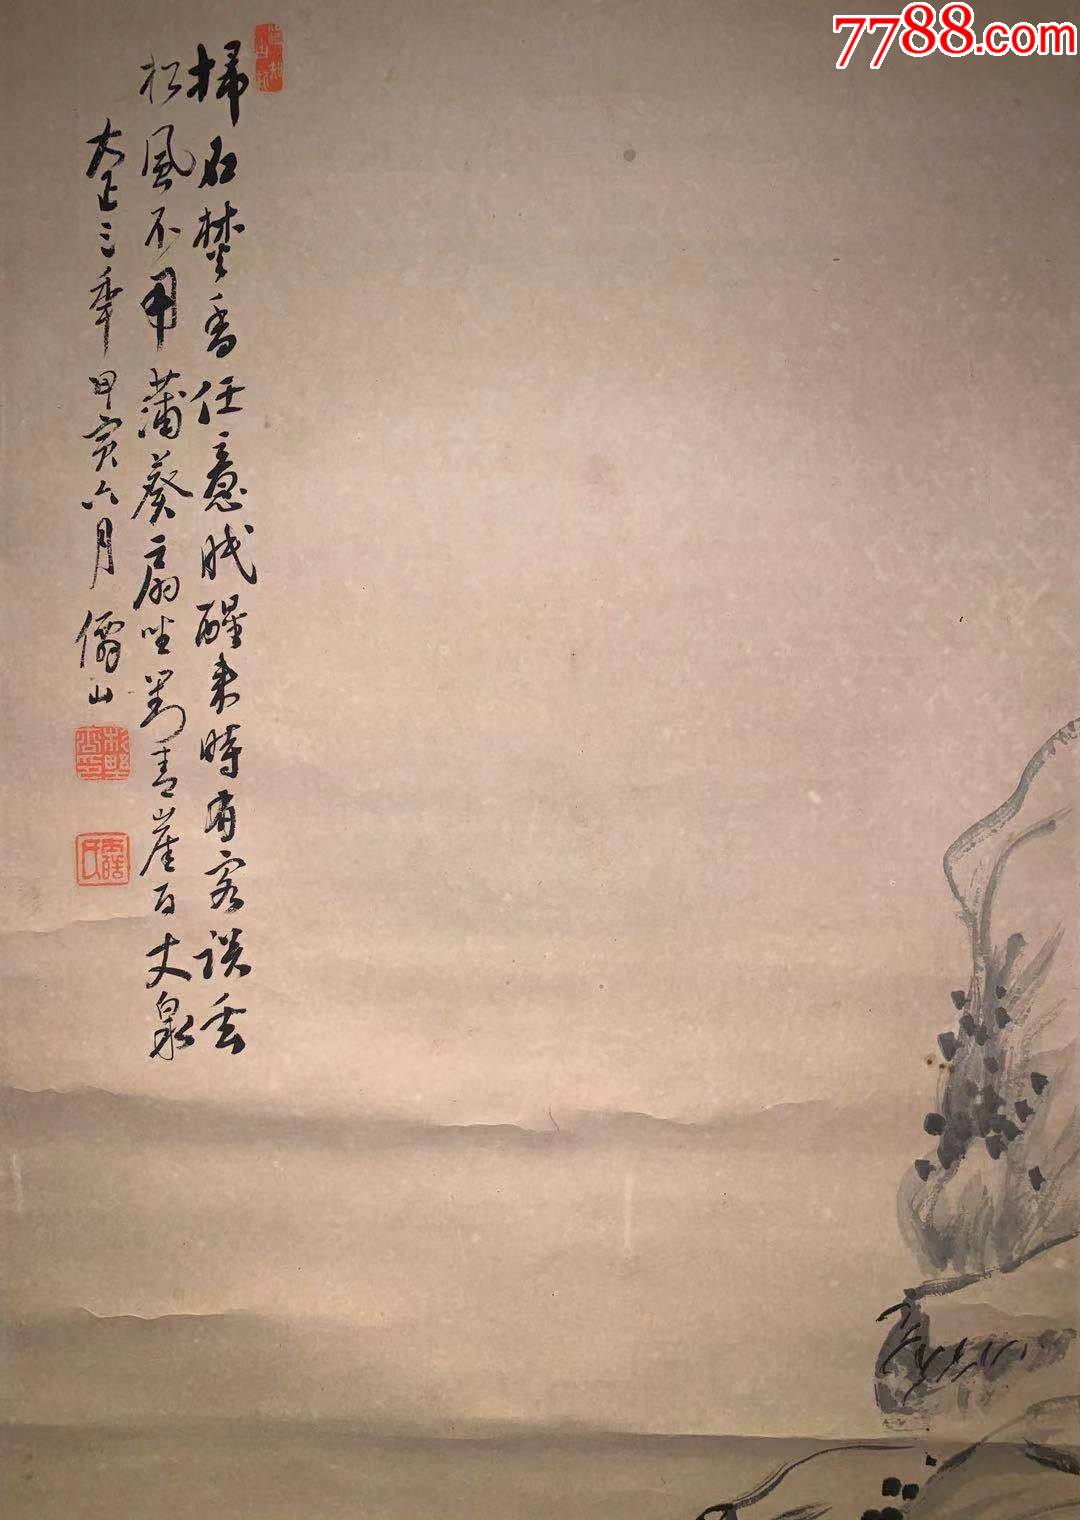 7788.com
掃石焚香任意眠醒來時有客談玄
松風不用蒲葵扇坐對青崖百丈泉
大正三年甲寅六月儒山